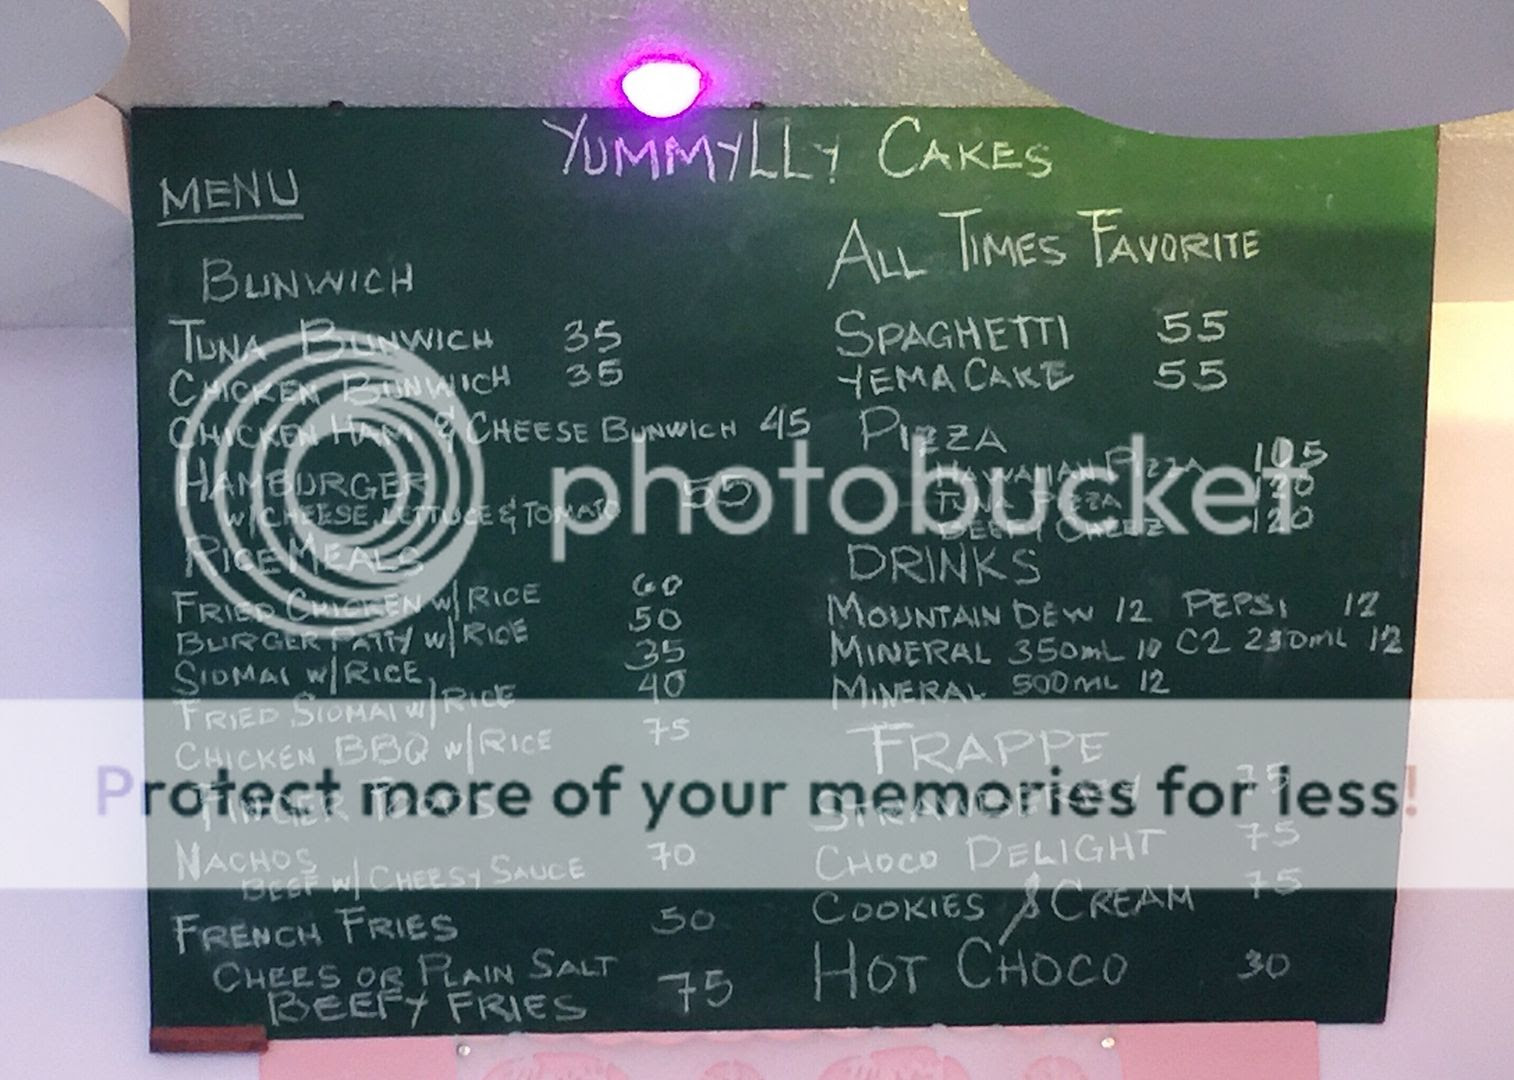 YUMMYLLY CAKES
MENU
BUNWICH
TUNA BUNWICH 35
CHICKEN BUNWICH 35
CHICKEN HAM & CHEESE BUNWICH 45
HAMBURGER 55
W/CHEESE, LETTUCE & TOMATO
RICE MEALS
FRIED CHICKEN W/ RICE 60
BURGER PATTY W/ RICE 50
SIOMAI W/ RICE 35
FRIED SIOMAI W/ RICE 40
CHICKEN BBQ W/ RICE 75
FINGER FOODS
NACHOS 70
BEEF W/ CHEESY SAUCE
FRENCH FRIES 50
CHEES OR PLAIN SALT
BEEFY FRIES 75
ALL TIMES FAVORITE
SPAGHETTI 55
YEMA CAKE 55
PIZZA
HAWAIIAN PIZZA 105
TUNA PIZZA 120
BEEFY CHEEZ 120
DRINKS
MOUNTAIN DEW 12 PEPSI 12
MINERAL 350ML 10 C2 230ML 12
MINERAL 500ML 12
FRAPPE
STRAWBERRY 75
CHOCO DELIGHT 75
COOKIES & CREAM 75
HOT CHOCO 30
photobucket
Protect more of your memories for less!